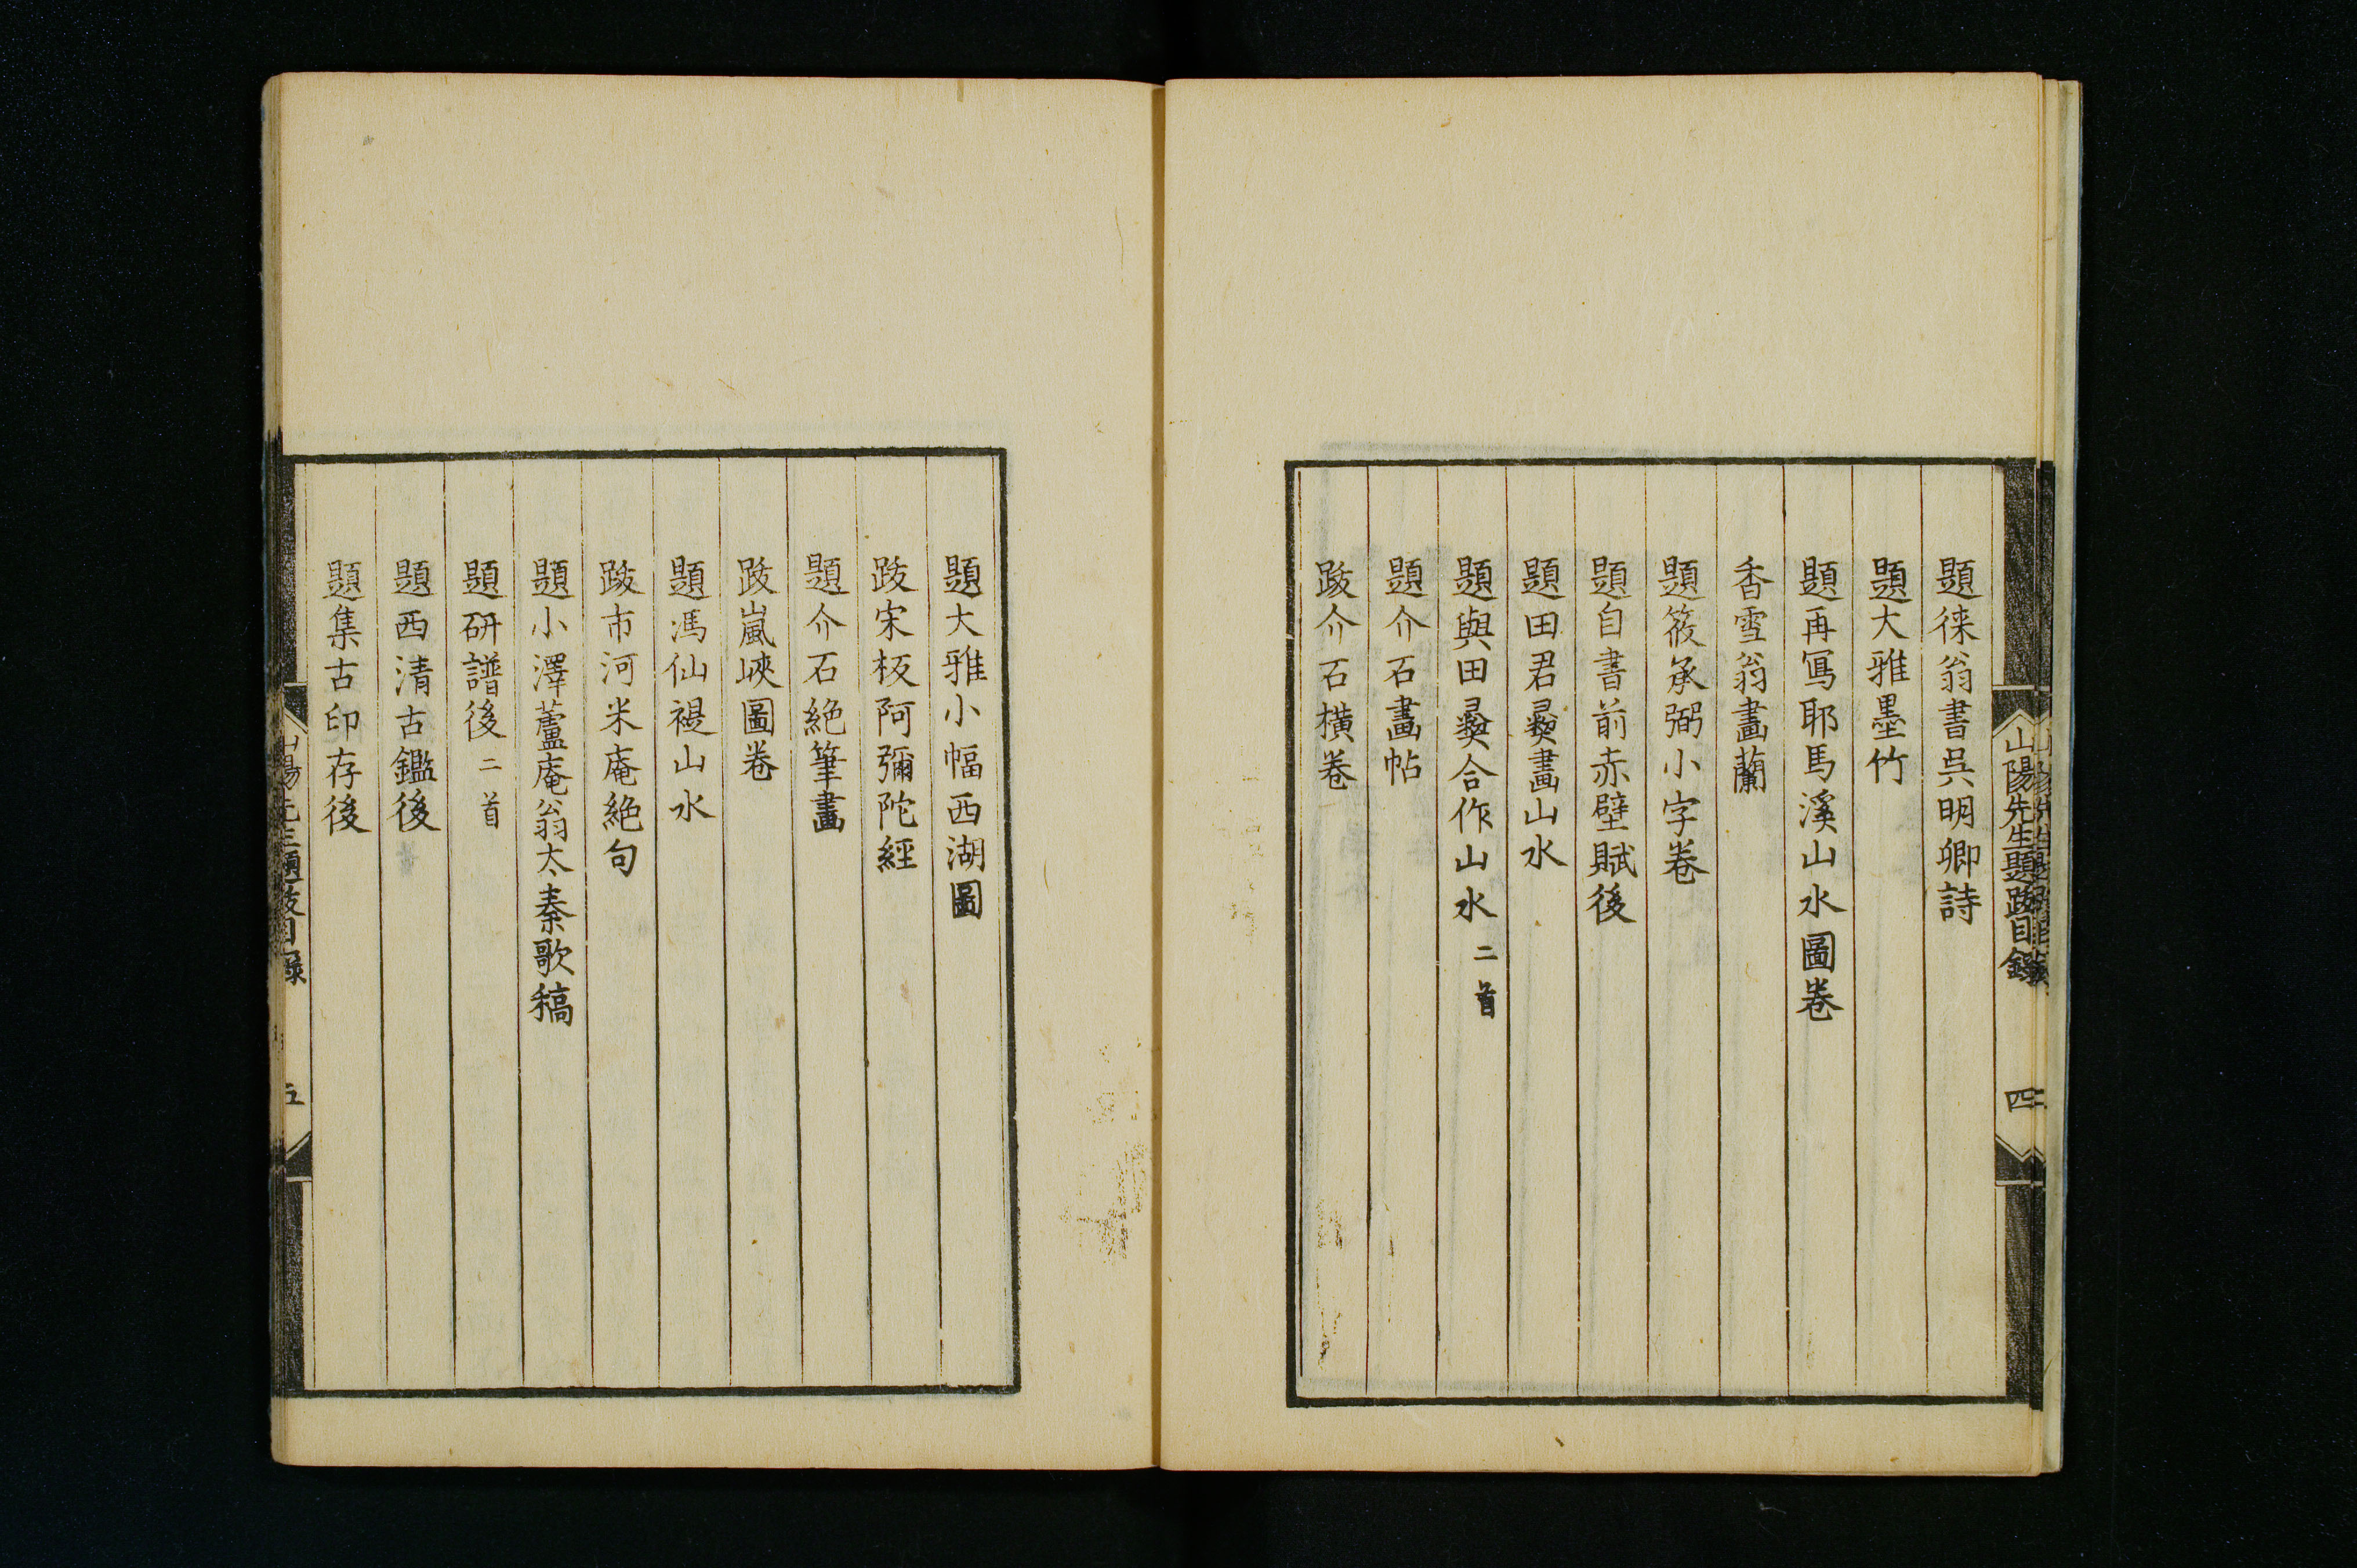 山陽先生題跋目錄
四
題徠翁書吳明卿詩
題大雅墨竹
題再寫耶馬溪山水圖卷
香雪翁畫蘭
題筱承弼小字卷
題自書前赤壁賦後
題田君彝畫山水
題與田彝合作山水 二首
題介石畫帖
跋介石橫卷
題大雅小幅西湖圖
跋宋板阿彌陀經
題介石絕筆畫
跋嵐峽圖卷
題馮仙禔山水
跋市河米庵絕句
題小澤蘆庵翁太秦歌稿
題研譜後 二首
題西清古鑑後
題集古印存後
五